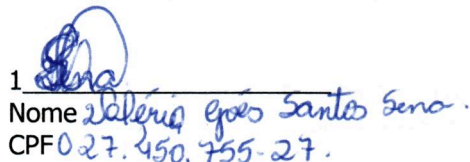 1 Sena
Nome Valéria Góes Santos Sena.
CPF 027.450.755-27.